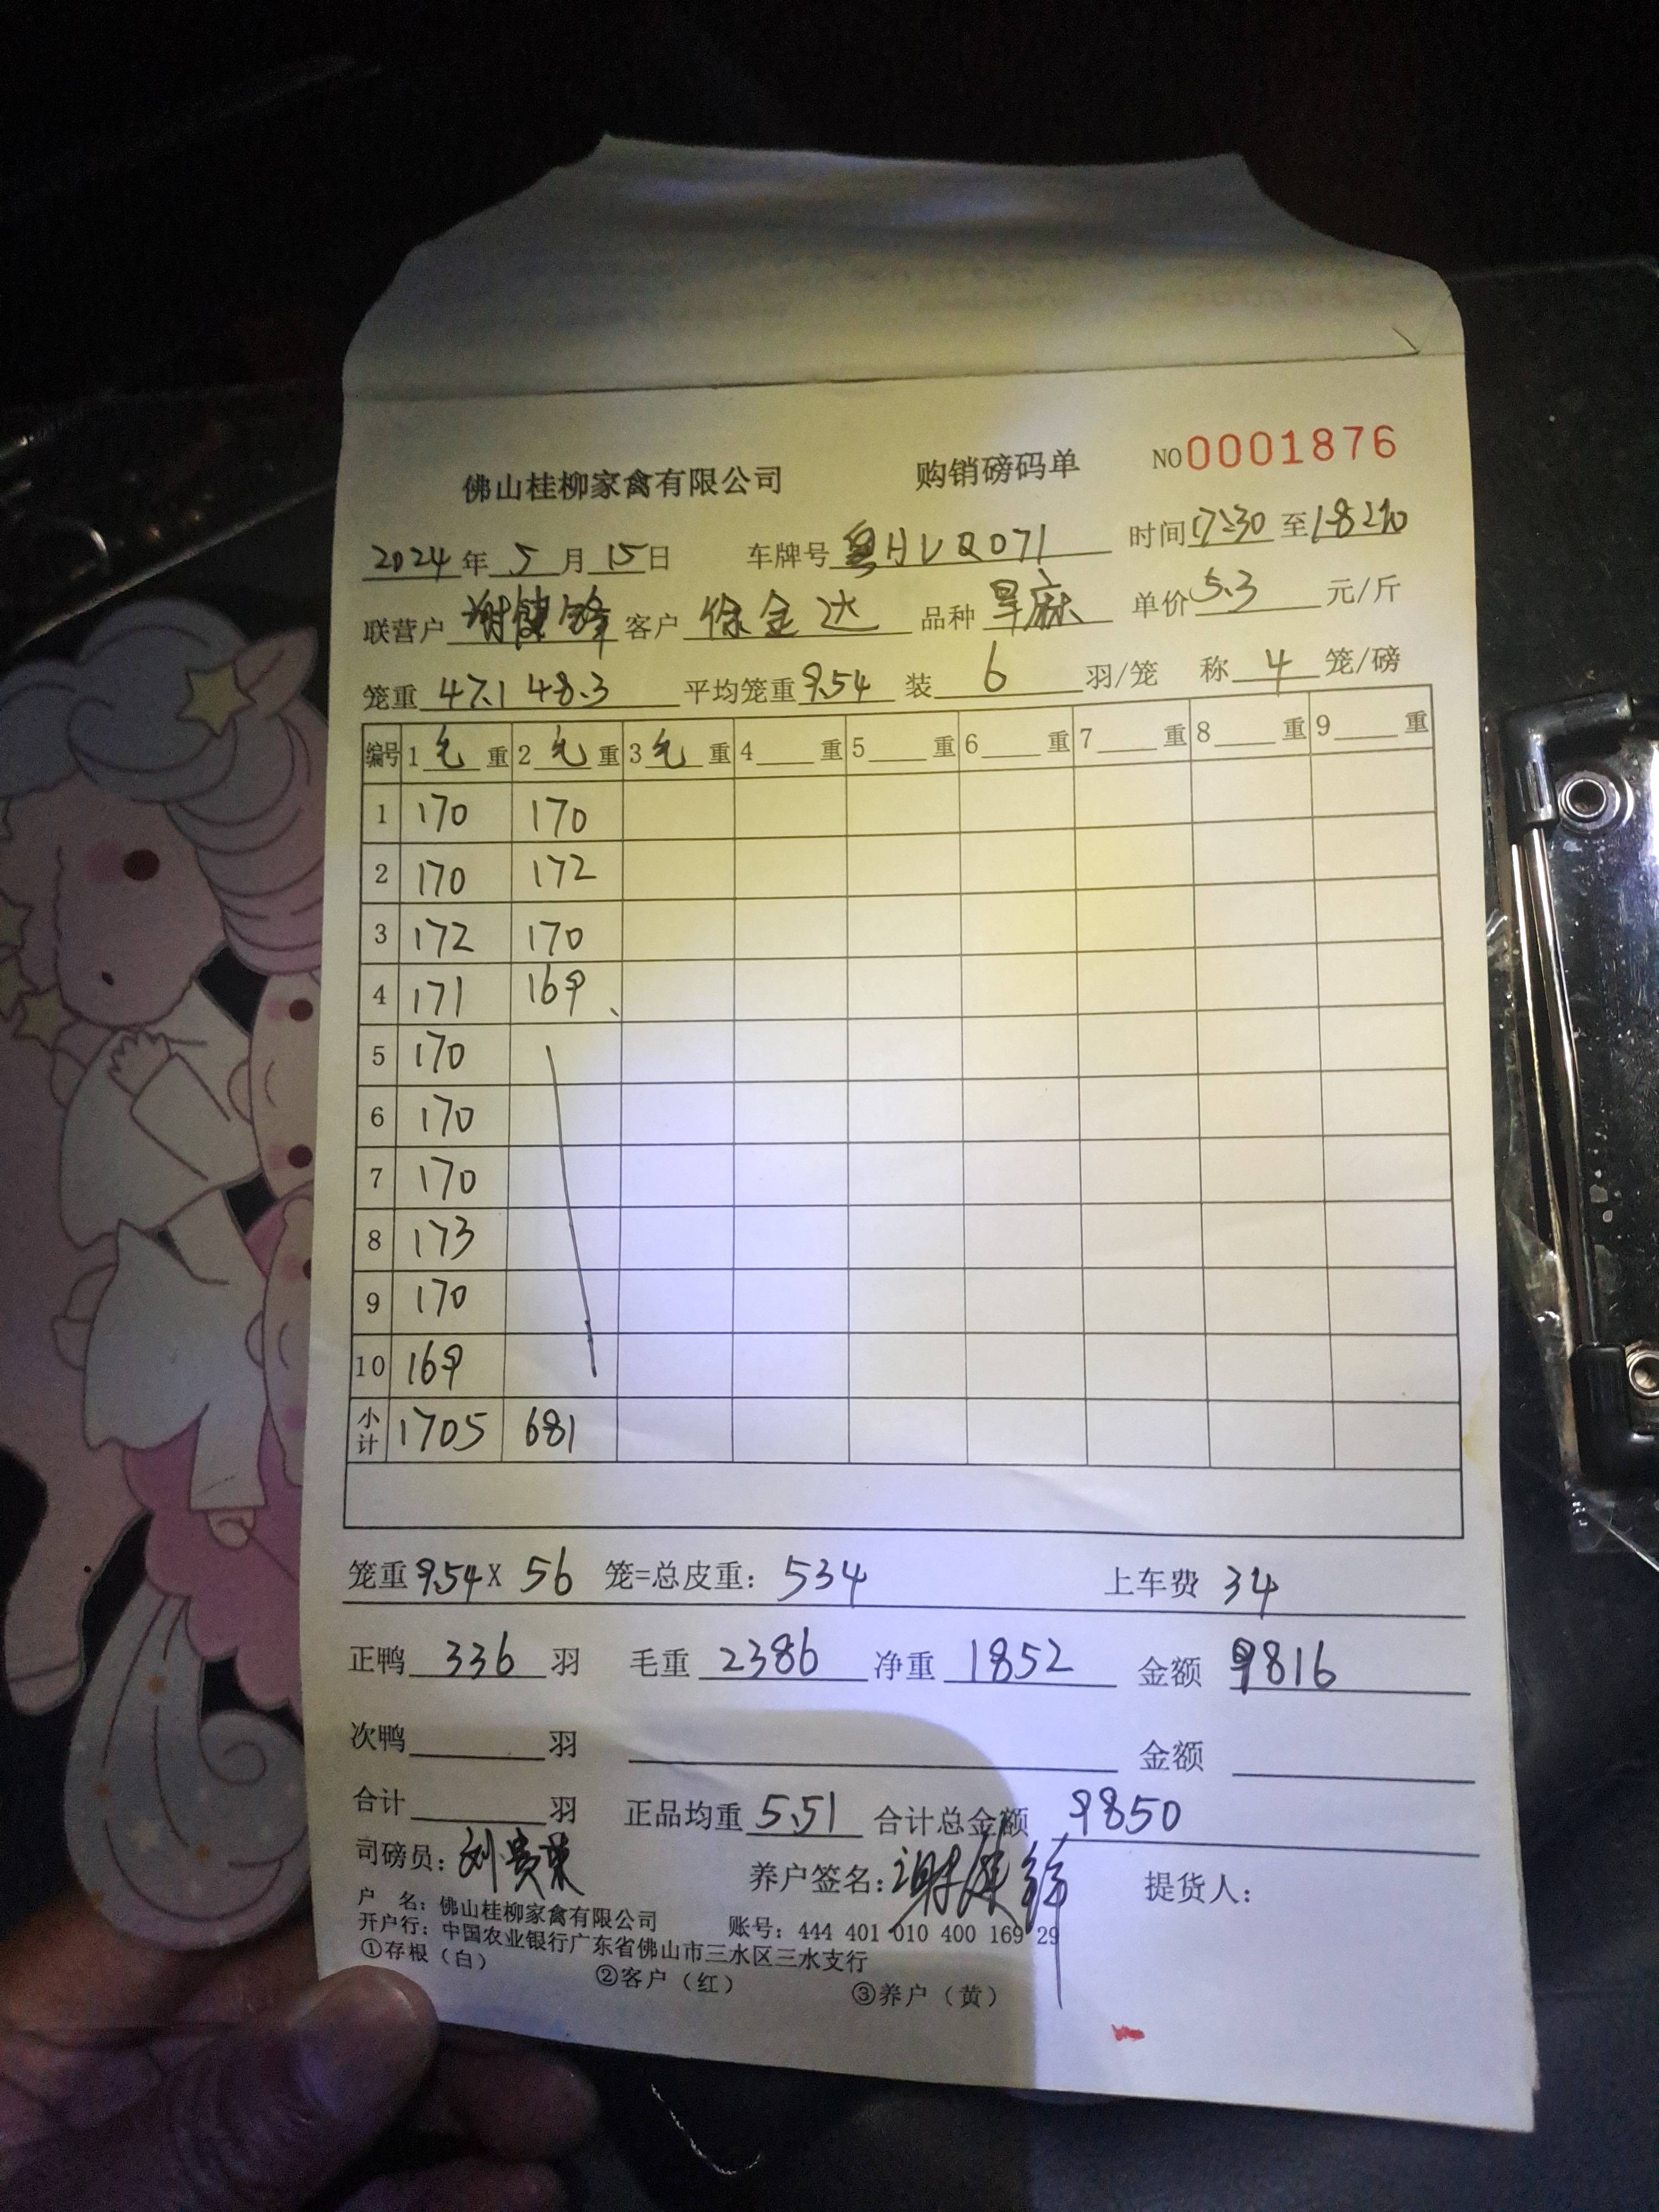 佛山桂柳家禽有限公司 购销磅码单 NO 0001876
2024年5月15日 车牌号 粤HVQ071 时间 17:30 至 18:20
联营户 谢健锋 客户 徐金达 品种 旱麻 单价 5.3 元/斤
笼重 47.1 48.3 平均笼重 9.54 装 6 羽/笼 称 4 笼/磅
编号 1 毛 重 2 毛 重 3 毛 重 4 重 5 重 6 重 7 重 8 重 9 重
1 170 170
2 170 172
3 172 170
4 171 169
5 170
6 170
7 170
8 173
9 170
10 169
小计 1705 681
笼重 9.54 X 56 笼=总皮重: 534 上车费 34
正鸭 336 羽 毛重 2386 净重 1852 金额 9816
次鸭 羽 金额
合计 羽 正品均重 5.51 合计总金额 9850
司磅员: 刘贵荣 养户签名: 谢健锋 提货人:
户 名: 佛山桂柳家禽有限公司 账号: 444 401 010 400 169 29
开户行: 中国农业银行广东省佛山市三水区三水支行
①存根(白) ②客户(红) ③养户(黄)